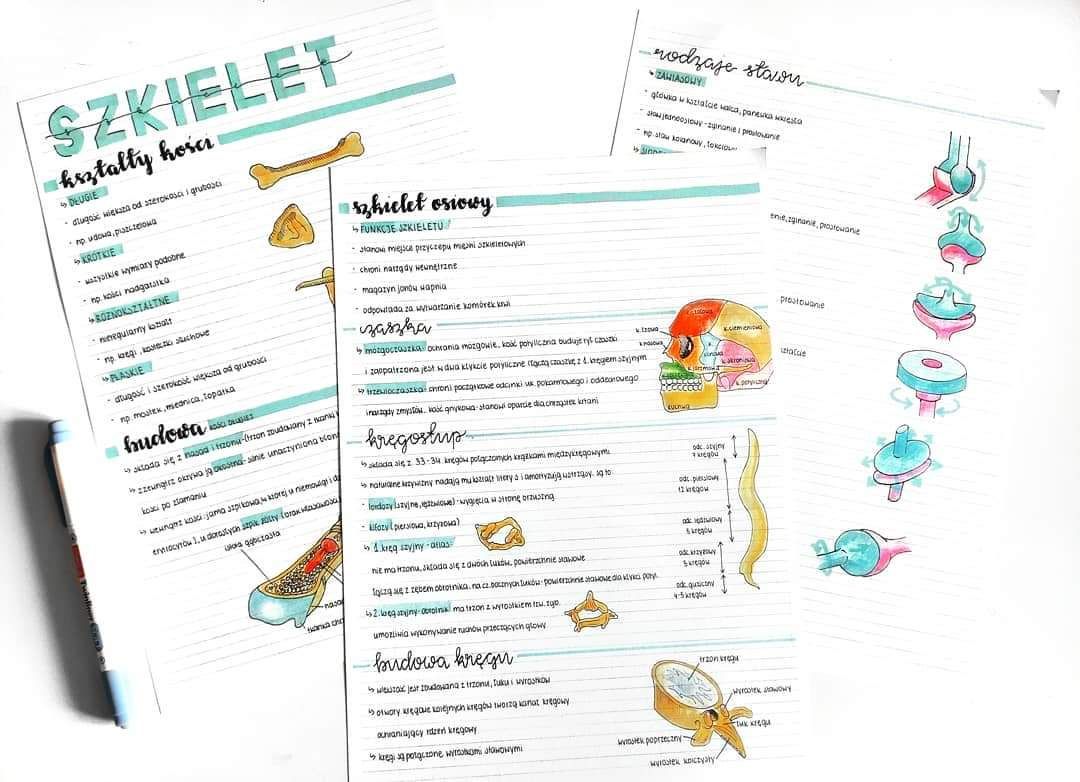 SZKIELET
kształty kości
↳ DŁUGIE
- długość większa od szerokości i grubości
- np. udowa, piszczelowa
↳ KRÓTKIE
- wszystkie wymiary podobne
- np. kości nadgarstka
↳ RÓŻNOKSZTAŁTNE
- nieregularny kształt
- np. kręgi, kosteczki słuchowe
↳ PŁASKIE
- długość i szerokość większa od grubości
- np. mostek, miednica, łopatka
budowa kości długiej
↳ składa się z nasad i trzonu (trzon zbudowany z tkanki
↳ z zewnątrz okrywa ją okostna - silnie unaczyniona błon
kości po złamaniu
↳ wewnątrz kości: jama szpikowa, w której u niemowląt i d
erytrocytów), u dorosłych szpik żółty (brak właściwości
istota gąbczasta
nasad
tkanka chr
szkielet osiowy
↳ FUNKCJE SZKIELETU
- stanowi miejsce przyczepu mięśni szkieletowych
- chroni narządy wewnętrzne
- magazyn jonów wapnia
- odpowiada za wytwarzanie komórek krwi
czaszka
↳ mózgoczaszka: ochrania mózgowie, kość potyliczna buduje tył czaszki
i zaopatrzona jest w dwa kłykcie potyliczne (łączą czaszkę z 1. kręgiem szyjnym
↳ trzewioczaszka: chroni początkowe odcinki uk. pokarmowego i oddechowego
i narządy zmysłów. kość gnykowa - stanowi oparcie dla chrząstek krtani
k. czołowa
k. ciemieniowa
k. łzowa
k. nosowa
k. klinowa
k. skroniowa
k. jarzmowa
k. potyliczna
żuchwa
kręgosłup
↳ składa się z 33-34 kręgów połączonych krążkami międzykręgowymi
↳ naturalne krzywizny nadają mu kształt litery s i amortyzują wstrząsy. są to:
- lordozy (szyjna, lędźwiowa) - wygięcia w stronę brzuszną
- kifozy (piersiowa, krzyżowa)
↳ 1. kręg szyjny - atlas:
nie ma trzonu, składa się z dwóch łuków, powierzchnie stawowe
łączą się z zębem obrotnika. na cz. bocznych łuków - powierzchnie stawowe dla kłykci potyl.
↳ 2. kręg szyjny - obrotnik: ma trzon z wyrostkiem tzw. ząb.
umożliwia wykonywanie ruchów przeczących głowy
odc. szyjny
7 kręgów
odc. piersiowy
12 kręgów
odc. lędźwiowy
5 kręgów
odc. krzyżowy
5 kręgów
odc. guziczny
4-5 kręgów
budowa kręgu
↳ większość jest zbudowana z trzonu, łuku i wyrostków
↳ otwory kręgowe kolejnych kręgów tworzą kanał kręgowy
ochraniający rdzeń kręgowy
↳ kręgi są połączone wyrostkami stawowymi
trzon kręgu
wyrostek stawowy
łuk kręgu
wyrostek poprzeczny
wyrostek kolczysty
rodzaje stawu
↳ ZAWIASOWY
- główka w kształcie walca, panewka wklęsła
- staw jednoosiowy - zginanie i prostowanie
- np. staw kolanowy, łokciowy
enie, zginanie, prostowanie
prostowanie